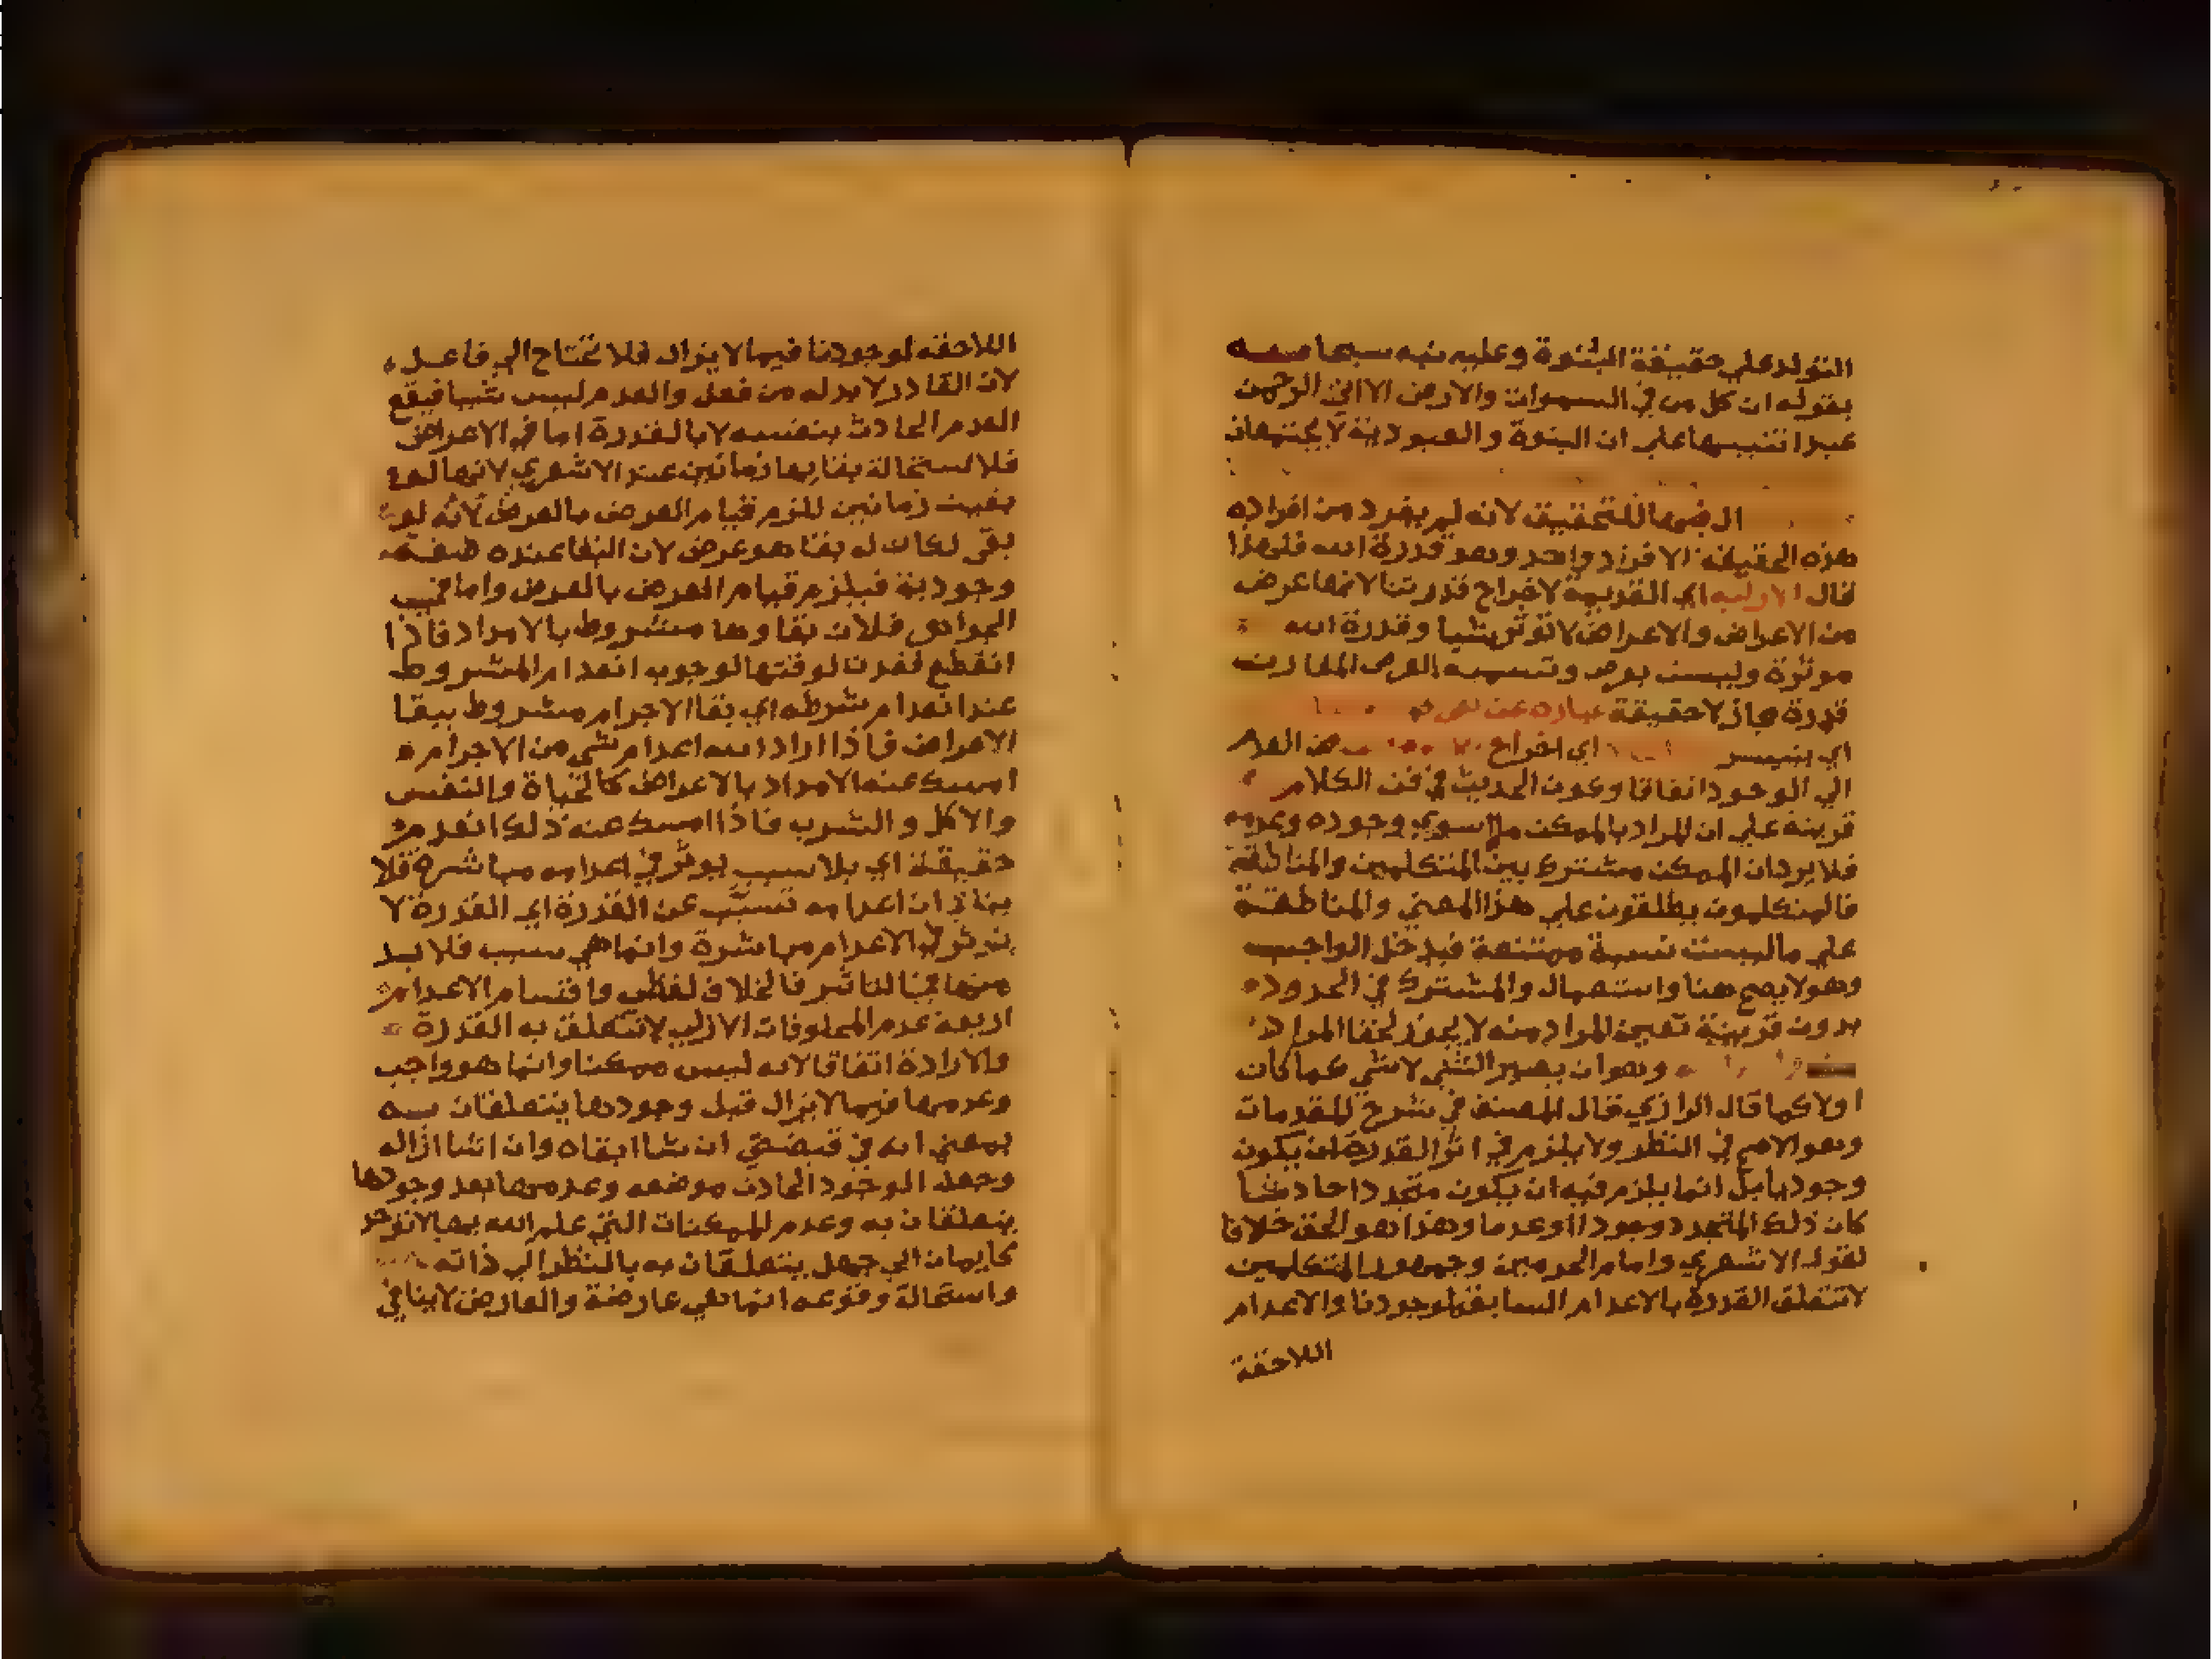 التولد على حقيقة البنوة وعليه نبه سبحانه
بقوله ان كل من في السموات والارض الا اتي الرحمن
عبدا تنبيها علي ان البنوة والعبودية لا يجتمعان
للتحقيق لانه لم يفرد من افراده
هذه الحقيقة الا فرد واحد وهو قدرة الله فلهذا
قال الازليه اي القديمة لاخراج قدرتنا لانها عرض
من الاعراض والاعراض لا توثر شيا وقدرة الله
موثرة وليست بعرض وتسميه العرض المقارن
قدرة مجاز لا حقيقة عباره عن
اي يتيسر اي اخراج من العدم
الي الوجود اتفاقا وكون الحديث في فن الكلام
قرينة علي ان المراد بالممكن ما سوي وجوده وعدمه
فلا يرد ان الممكن مشترك بين المتكلمين والمناطقة
فالمتكلمون يطلقون علي هذا المعني والمناطقة
علي ما ليست نسبة ممتنعة فيدخل الواجب
وهو لا يصح هنا واستعمال والمشترك في الحدود
بدون قرينة تعيين المراد منه لا يجوز لخفا المراد
وهو ان يصير الشي لا شي كما كان
اولا كما قال الرازي قال المصنف في شرح المقدمات
وهو الاصح في النظر ولا يلزم في اثر القدرة ان يكون
وجوديا بل انما يلزم فيه ان يكون متجددا حادثا
كان ذلك المتجدد وجودا او عدما وهذا هو الحق خلافا
لقول الاشعري وامام الحرمين وجمهور المتكلمين
لا تتعلق القدرة بالاعدام السابق لوجودنا والاعدام
اللاحقة
اللاحقه لوجودنا فيما لا يزال فلا تحتاج الي فاعل
لان القادر لا بد له من فعل والعدم ليس شيا فيقع
العدم الحادث بنفسه لا بالقدرة اما في الاعراض
فلاستحالة بقايها زمانين عند الاشعري لانها لو
بقيت زمانين للزم قيام العرض بالعرض لانه لو
بقي لكان له بقا هو عرض لان البقا عنده صفة
وجودية فيلزم قيام العرض بالعرض واما في
الجواهر فلان بقاوها مشروط بالامداد فاذا
انقطع لوقتها لوجوب انعدام المشروط
عند انعدام شرطه اي بقا الاجرام مشروط ببقا
الاعراض فاذا اراد الله اعدام شي من الاجرام
امسك عنه الامداد بالاعراض كالحياة والنفس
والاكل والشرب فاذا امسك عنه ذلك انعدم
حقيقة اي بلا سبب يوثر في اعدامه مباشرة فلا
ان اعدامه تسبب عن القدرة اي القدرة لا
توثر في الاعدام مباشرة وانما هي سبب فلا بد
منها في التاثير فالخلاف لفظي واقسام الاعدام
اربعة عدم المخلوقات الازلي لا تتعلق به القدرة
والارادة اتفاقا لانه ليس ممكنا وانما هو واجب
وعدمها فيما لا يزال قبل وجودها يتعلقان به
بمعني انه في قبضتي ان شا ابقاه وان شا ازاله
وجعل الوجود الحادث موضعه وعدمها بعد وجودها
يتعلقان به وعدم الممكنات التي علم الله بها لا توجد
كايمان ابي جهل يتعلقان به بالنظر الي ذاته
واستحالة وقوعه انما هي عارضة والعارض لا ينافي